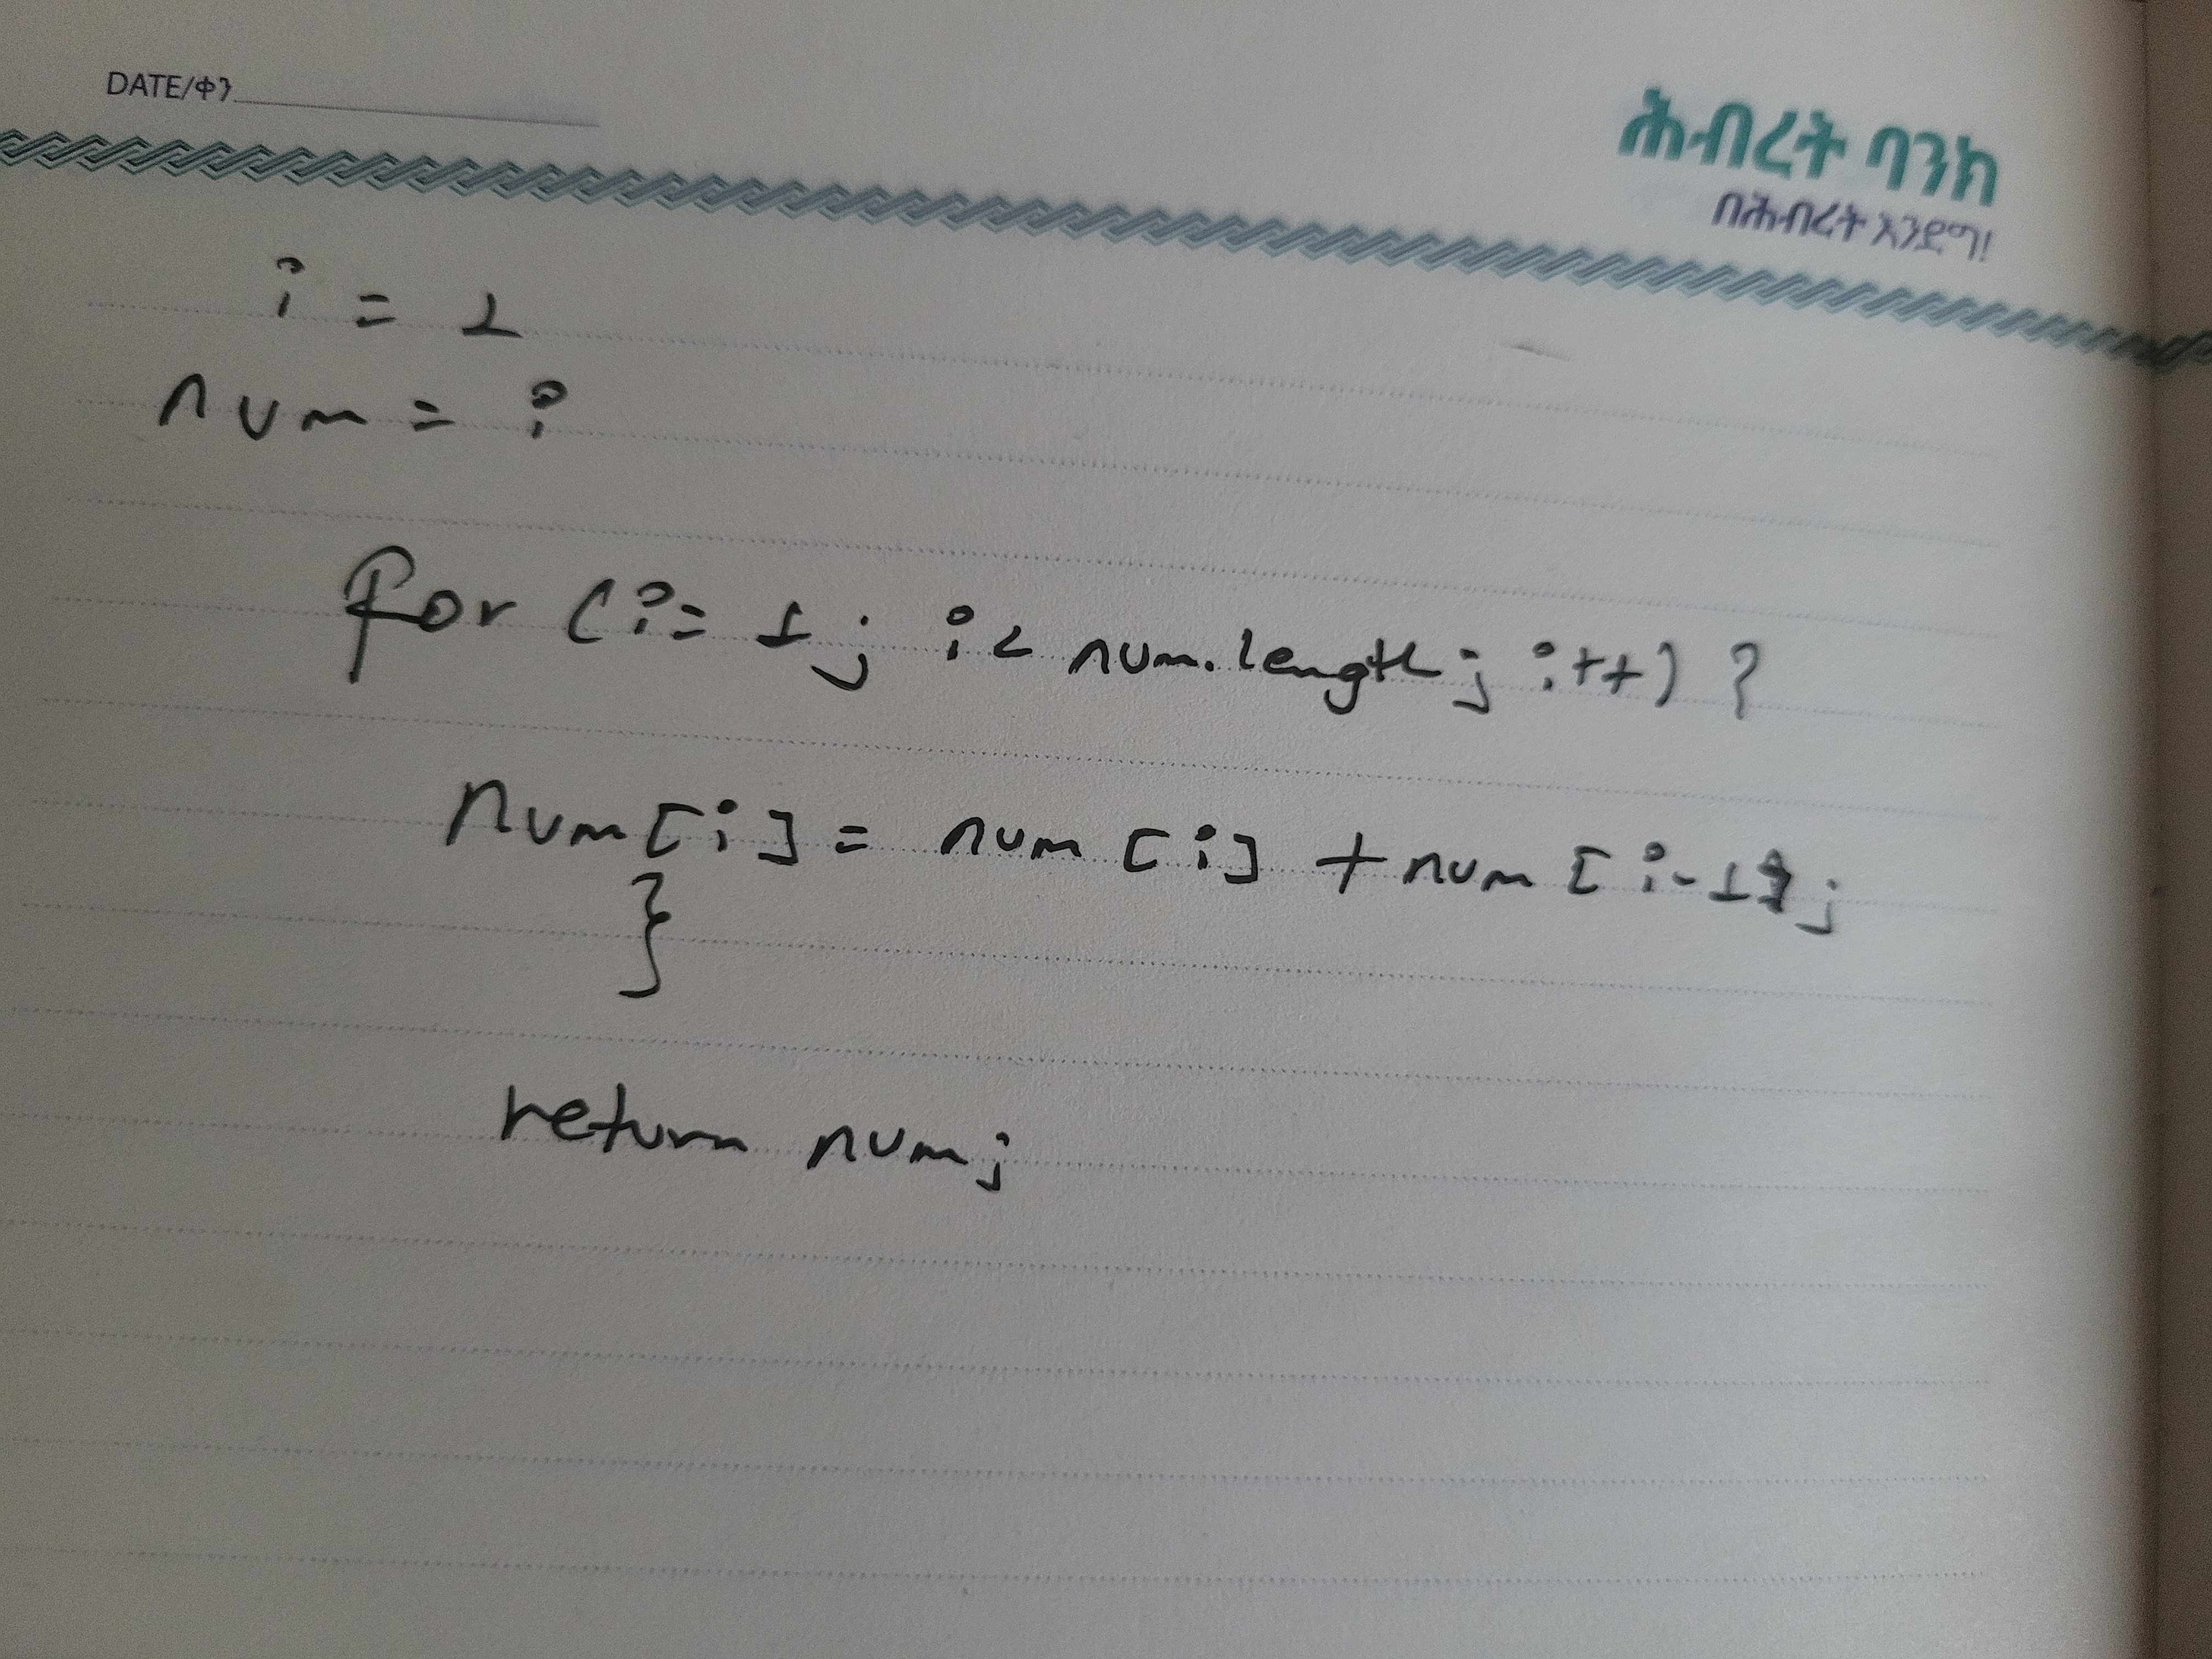 DATE/ቀን
ሕብረት ባንክ
በሕብረት እንደግ!
i = 1
num = i
for (i = 1; i < num.length; i++) {
num[i] = num[i] + num[i-1];
}
return num;